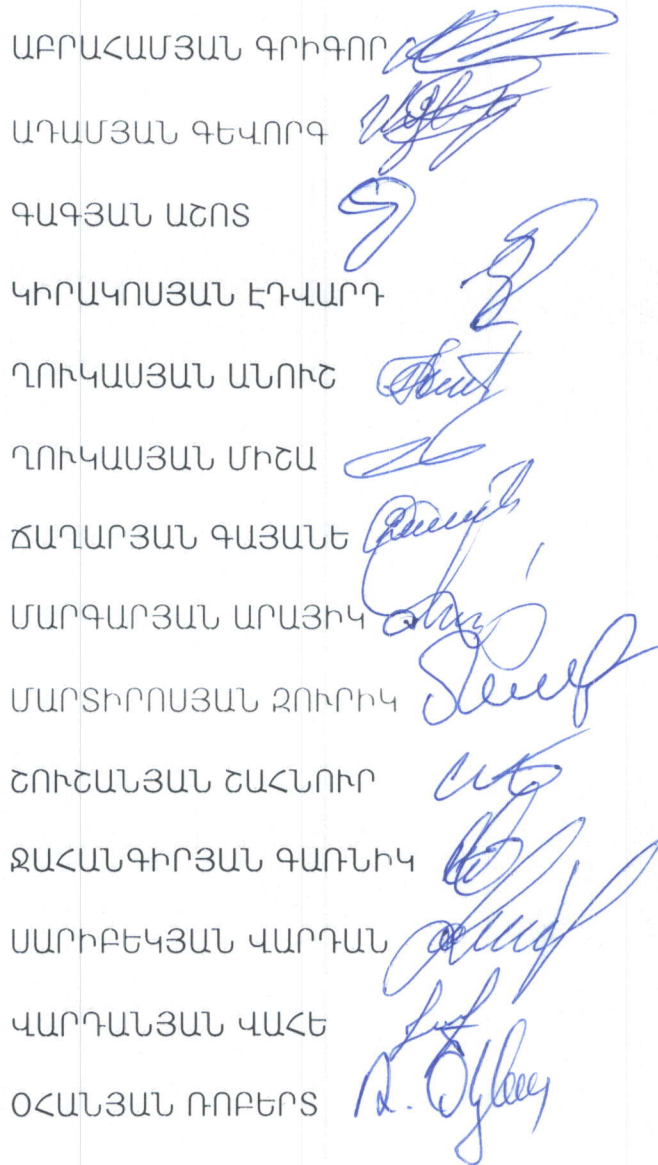 ԱԲՐԱՀԱՄՅԱՆ ԳՐԻԳՈՐ
ԱԴԱՄՅԱՆ ԳԵՎՈՐԳ
ԳԱԳՅԱՆ ԱՇՈՏ
ԿԻՐԱԿՈՍՅԱՆ ԷԴՎԱՐԴ
ՂՈՒԿԱՍՅԱՆ ԱՆՈՒՇ
ՂՈՒԿԱՍՅԱՆ ՄԻՇԱ
ՃԱՂԱՐՅԱՆ ԳԱՅԱՆԵ
ՄԱՐԳԱՐՅԱՆ ԱՐԱՅԻԿ
ՄԱՐՏԻՐՈՍՅԱՆ ԶՈՒՐԻԿ
ՇՈՒՇԱՆՅԱՆ ՇԱՀՆՈՒՐ
ՋԱՀԱՆԳԻՐՅԱՆ ԳԱՌՆԻԿ
ՍԱՐԻԲԵԿՅԱՆ ՎԱՐԴԱՆ
ՎԱՐԴԱՆՅԱՆ ՎԱՀԵ
ՕՀԱՆՅԱՆ ՌՈԲԵՐՏ